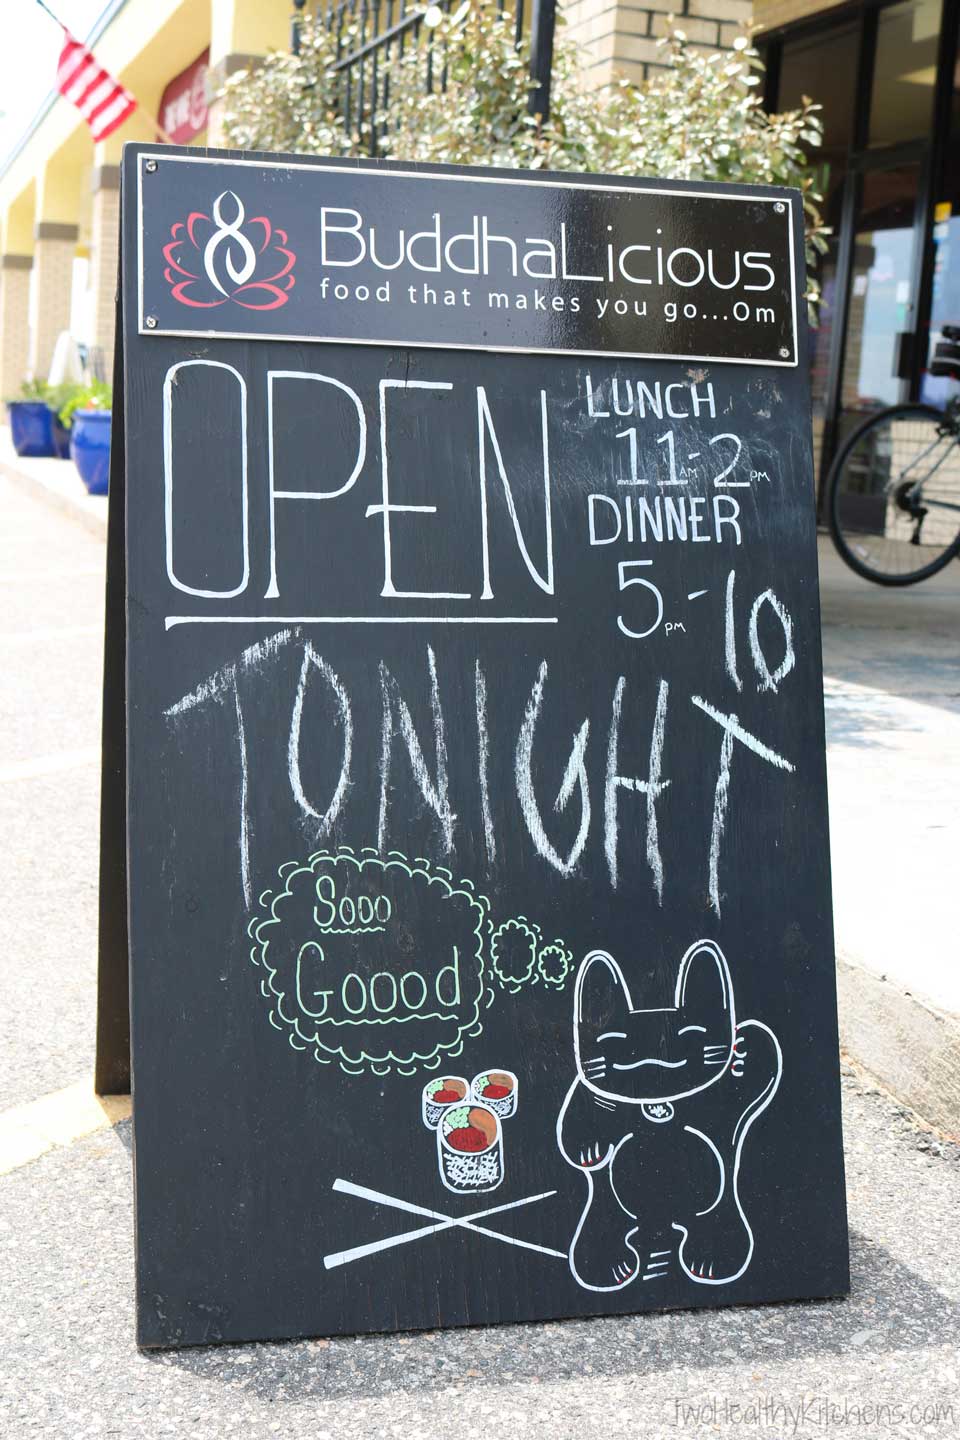 BuddhaLicious
food that makes you go...Om
OPEN
LUNCH
11AM-2PM
DINNER
5PM-10
TONIGHT
Sooo
Goood
TwoHealthyKitchens.com